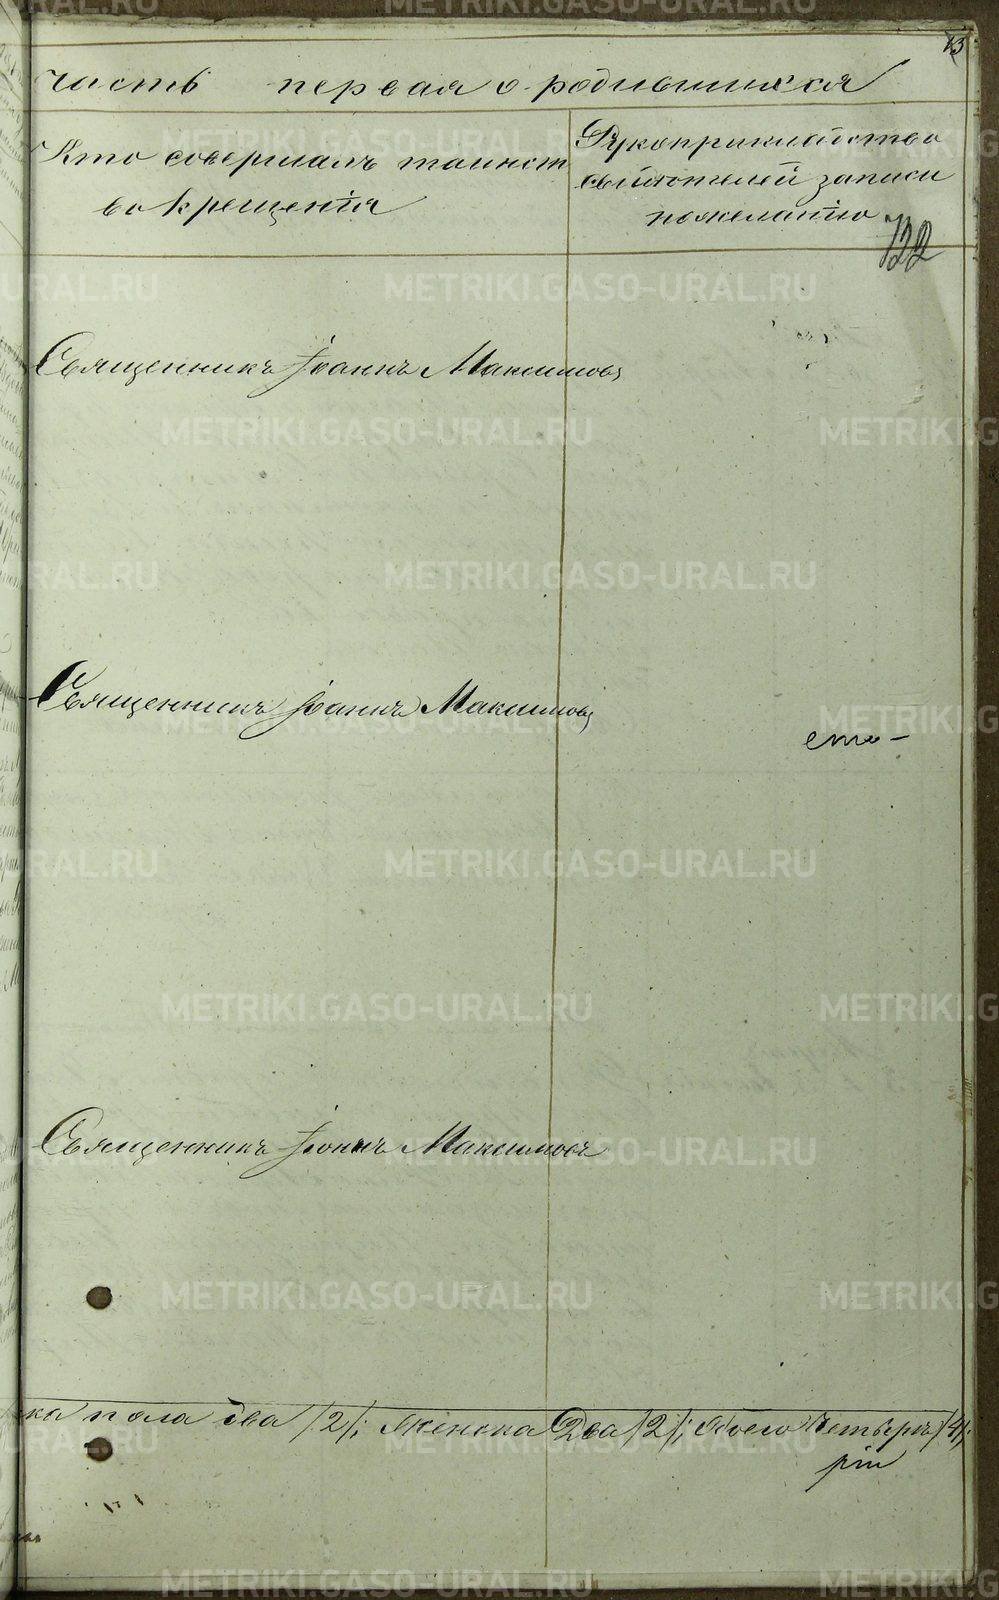 13
часть первая о родившихся
Кто совершалъ таинст
во крещенія
Рукоприкладство
свидѣтелей записи
по желанію
122
Священникъ Іоаннъ Максимовъ
Священникъ Іоаннъ Максимовъ
Священникъ Іоаннъ Максимовъ
ка пола два /2/; Женска Два /2/; Обоего Четверо /4/;
METRIKI.GASO-URAL.RU